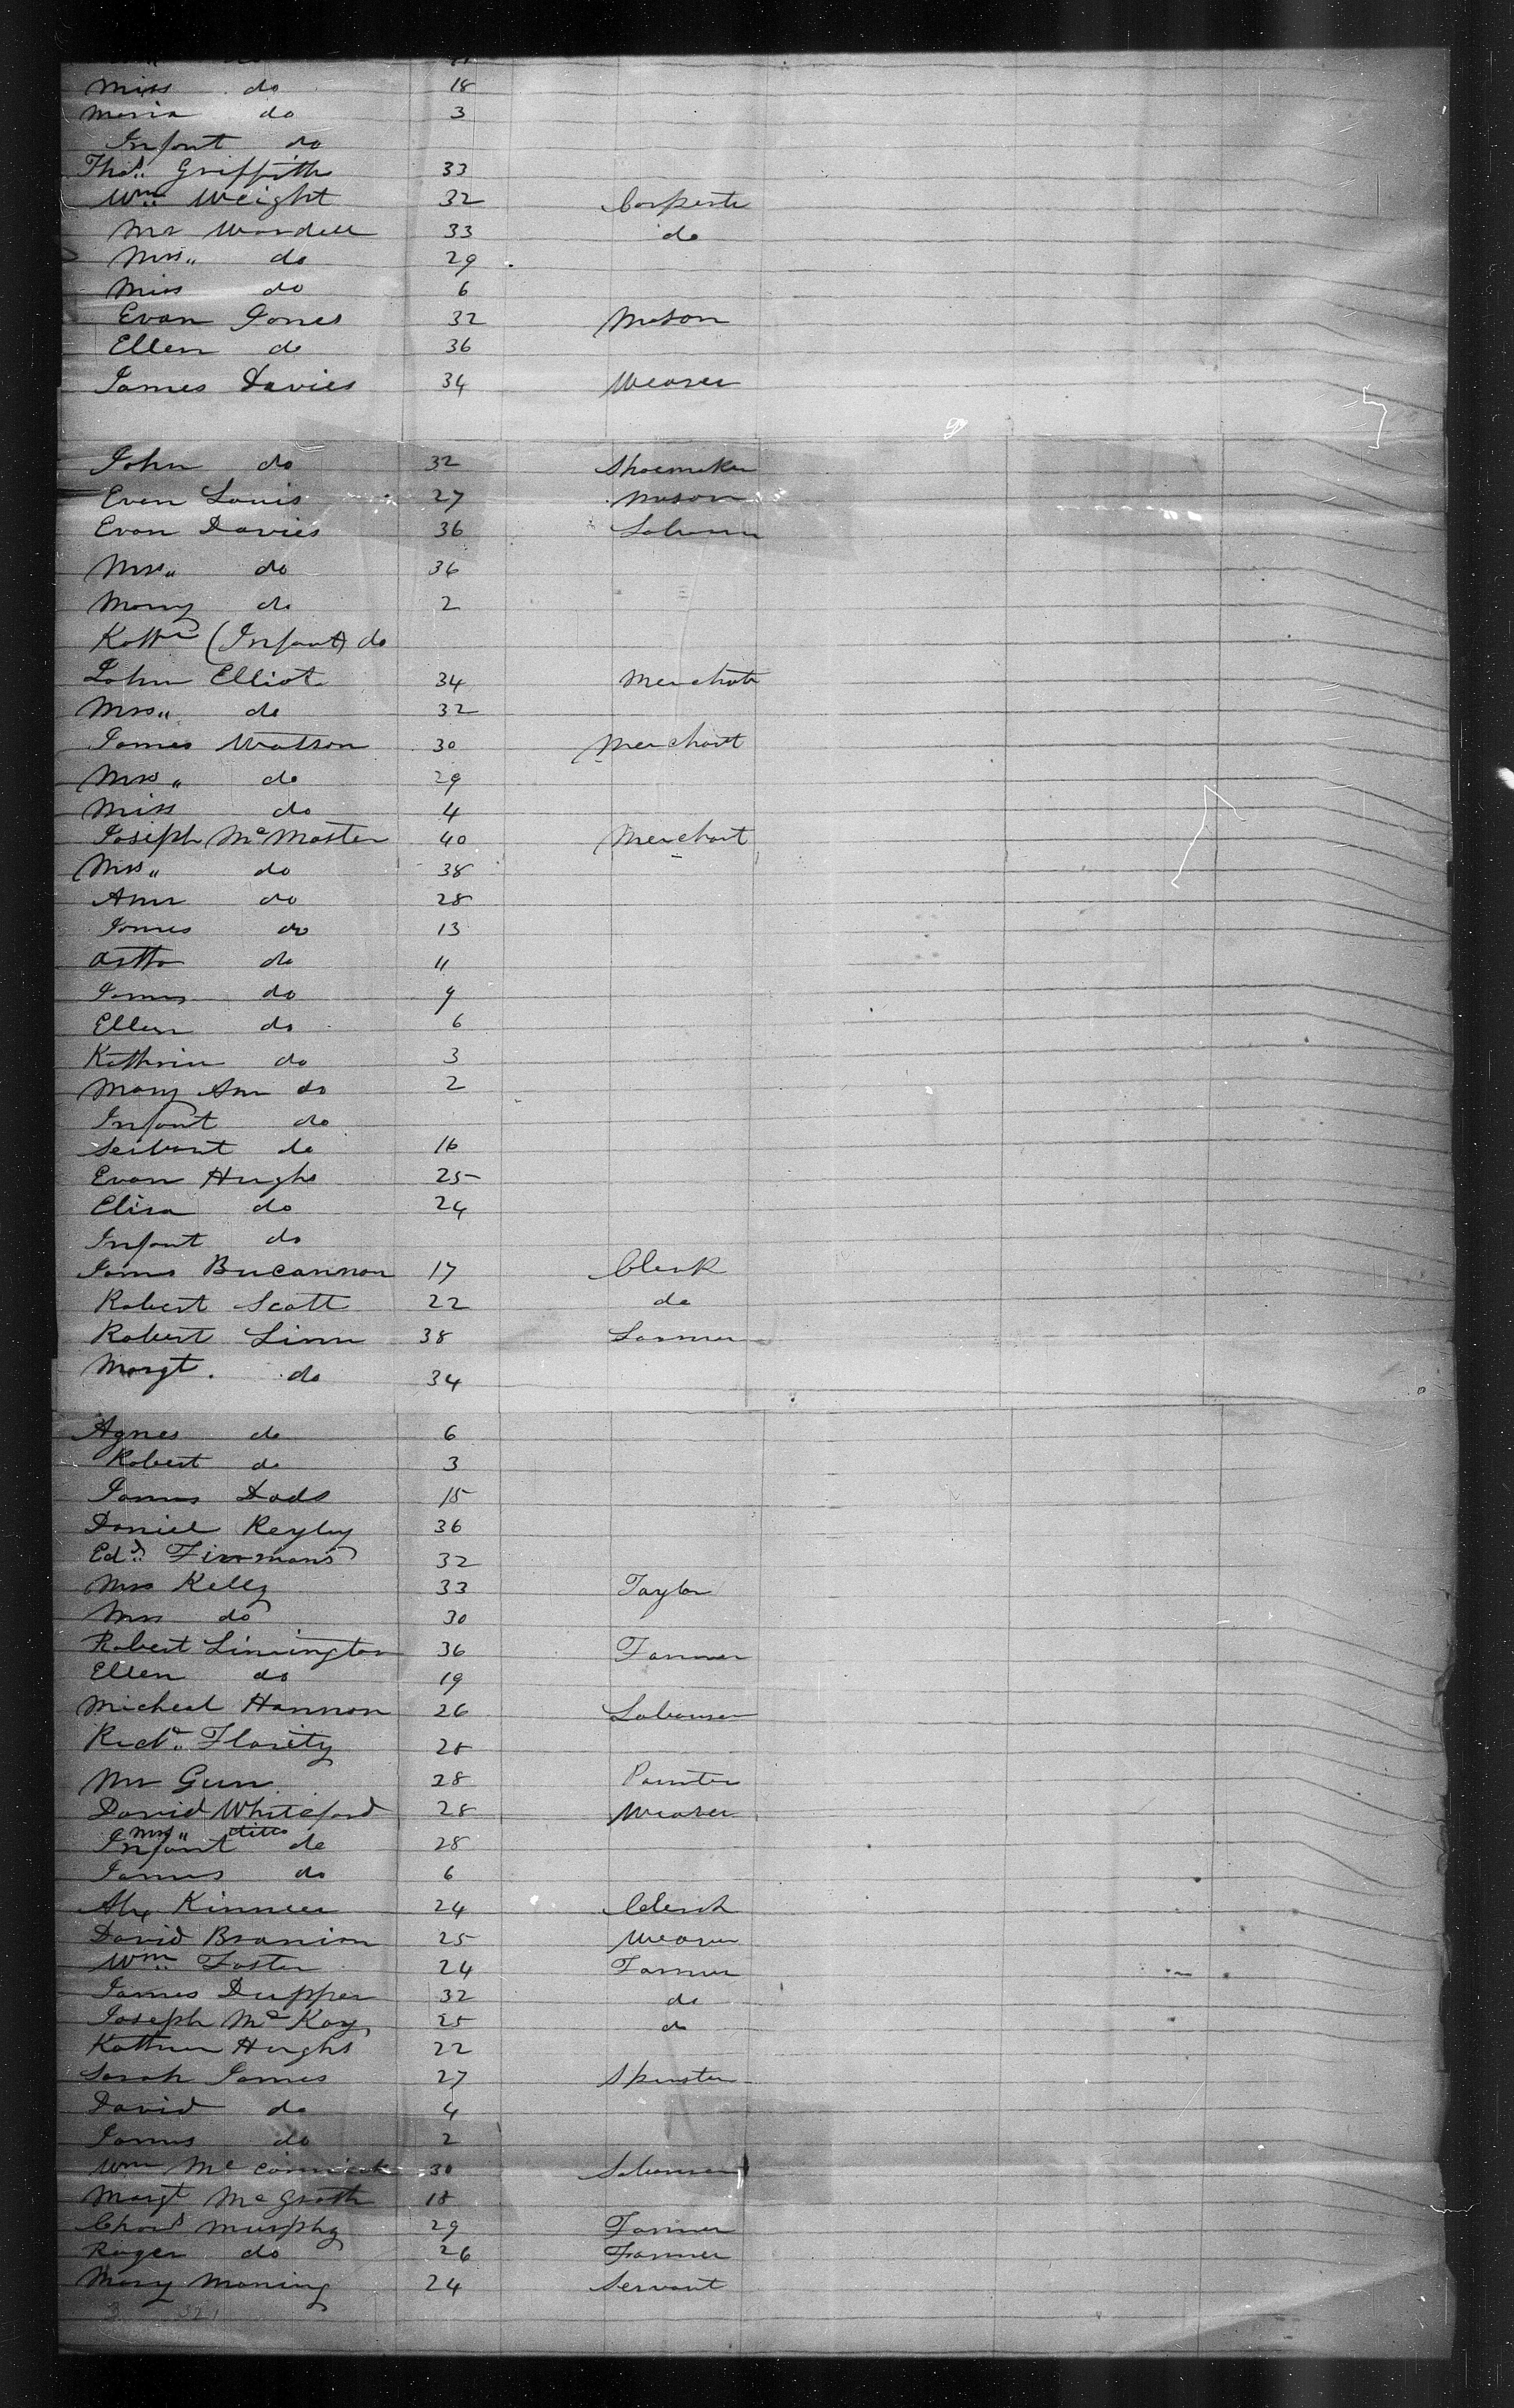 Miss do 18
Meria do 3
Infant do
Thos. Griffith 33
Wm. Weight 32 Carpente
Mr Wardell 33 do
Mrs. do 29
Miss do 6
Evan Jones 32 Mason
Ellen do 36
James Davies 34 Weaver
John do 32 Shoemaker
Even Louis 27 Mason
Evan Davies 36 Labourer
Mrs. do 36
Mary do 2
Kathn (Infant) do
John Elliot 34 Merchat
Mrs. do 32
James Watson 30 Merchant
Mrs. do 29
Miss do 4
Joseph McMaster 40 Merchant
Mrs. do 38
Ann do 28
James do 13
Artha do 11
James do 9
Ellen do 6
Kathrin do 3
Mary Ann do 2
Infant do
Servant do 16
Evan Hughs 25
Elisa do 24
Infant do
James Bucannon 17 Clerk
Robert Scott 22 do
Robert Linn 38 Farmer
Margt. do 34
Agnes do 6
Robert do 3
James Dods 15
Daniel Reyley 36
Edd. Fimmons 32
Mrs Kelly 33 Taylor
Mrs do 30
Robert Linington 36 Farmer
Ellen do 19
Micheal Hannon 26 Labourer
Richd. Flarity 28
Mr Gunn 28 Painter
David Whiteford 28 Weaver
Mrs. ditto
Infant do 28
James do 6
Alex Kinneer 24 Clerk
David Branion 25 Weaver
Wm. Foster 24 Farmer
James Dupper 32 do
Joseph McKay 25 do
Kathren Hughs 22
Sarah James 27 Spinster
David do 4
James do 2
Wm McCormick 30 Labourer
Margt McGrath 18
Chars Murphy 29 Farmer
Roger do 26 Farmer
Mary Moning 24 Servant